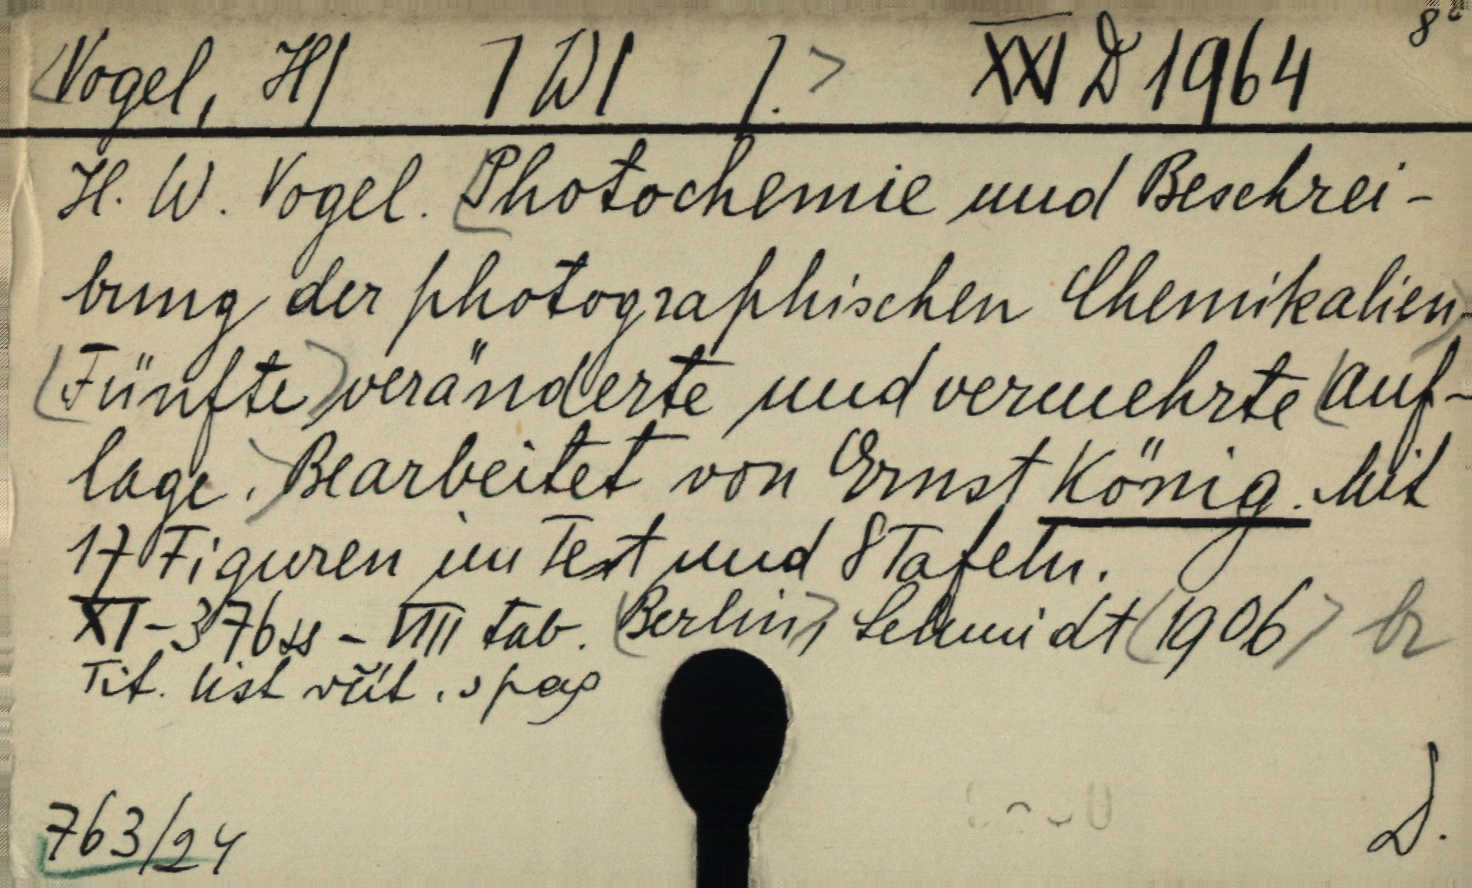 <Vogel, H[ ] W[ ].> XXVI D 1964 8°
H. W. Vogel. Photochemie und Beschrei-
bung der photographischen Chemikalien.
(Fünfte) veränderte und vermehrte (Auf-
lage.) Bearbeitet von Ernst König. Mit
17 Figuren im Text und 8 Tafeln.
XI-376 ss - VIII tab. (Berlin), Schmidt (1906) br
Tit. list včít. v pag
763/24
D.